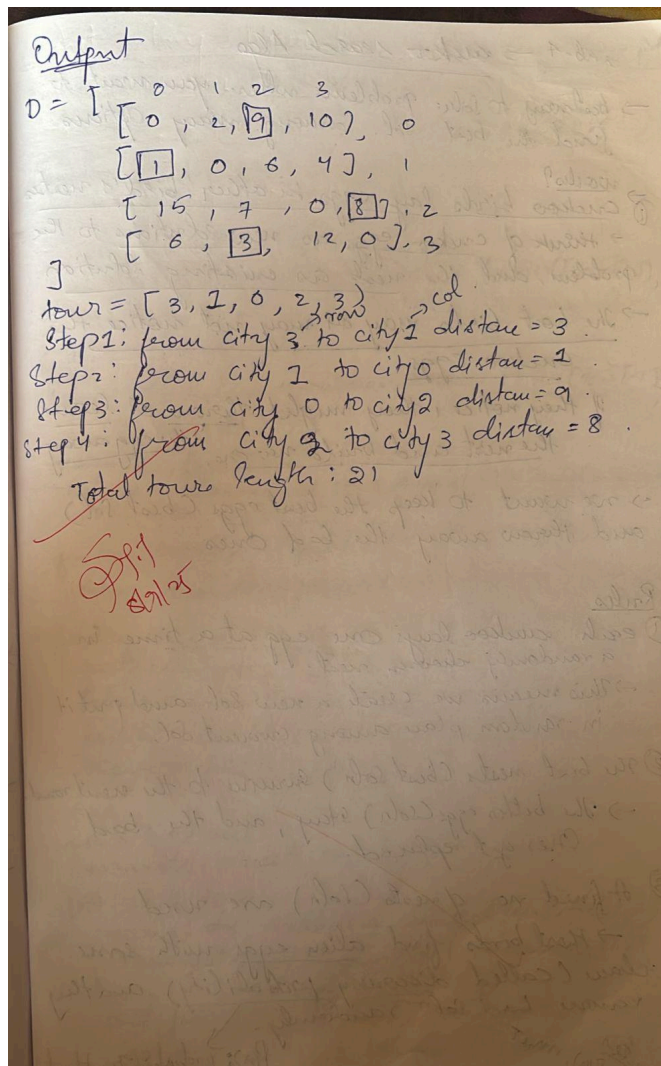 Output
0 1 2 3
D = [
[ 0 , 2, 9 , 10 ] , 0
[ 1 , 0 , 6 , 4 ] , 1
[ 15 , 7 , 0 , 8 ] , 2
[ 6 , 3 , 12 , 0 ] , 3
]
tour = [ 3, 1, 0, 2, 3 ]
row col
Step 1: from city 3 to city 1 distan = 3
Step 2: from city 1 to city 0 distan = 1
Step 3: from city 0 to city 2 distan = 9
Step 4: from city 2 to city 3 distan = 8
Total tour length : 21